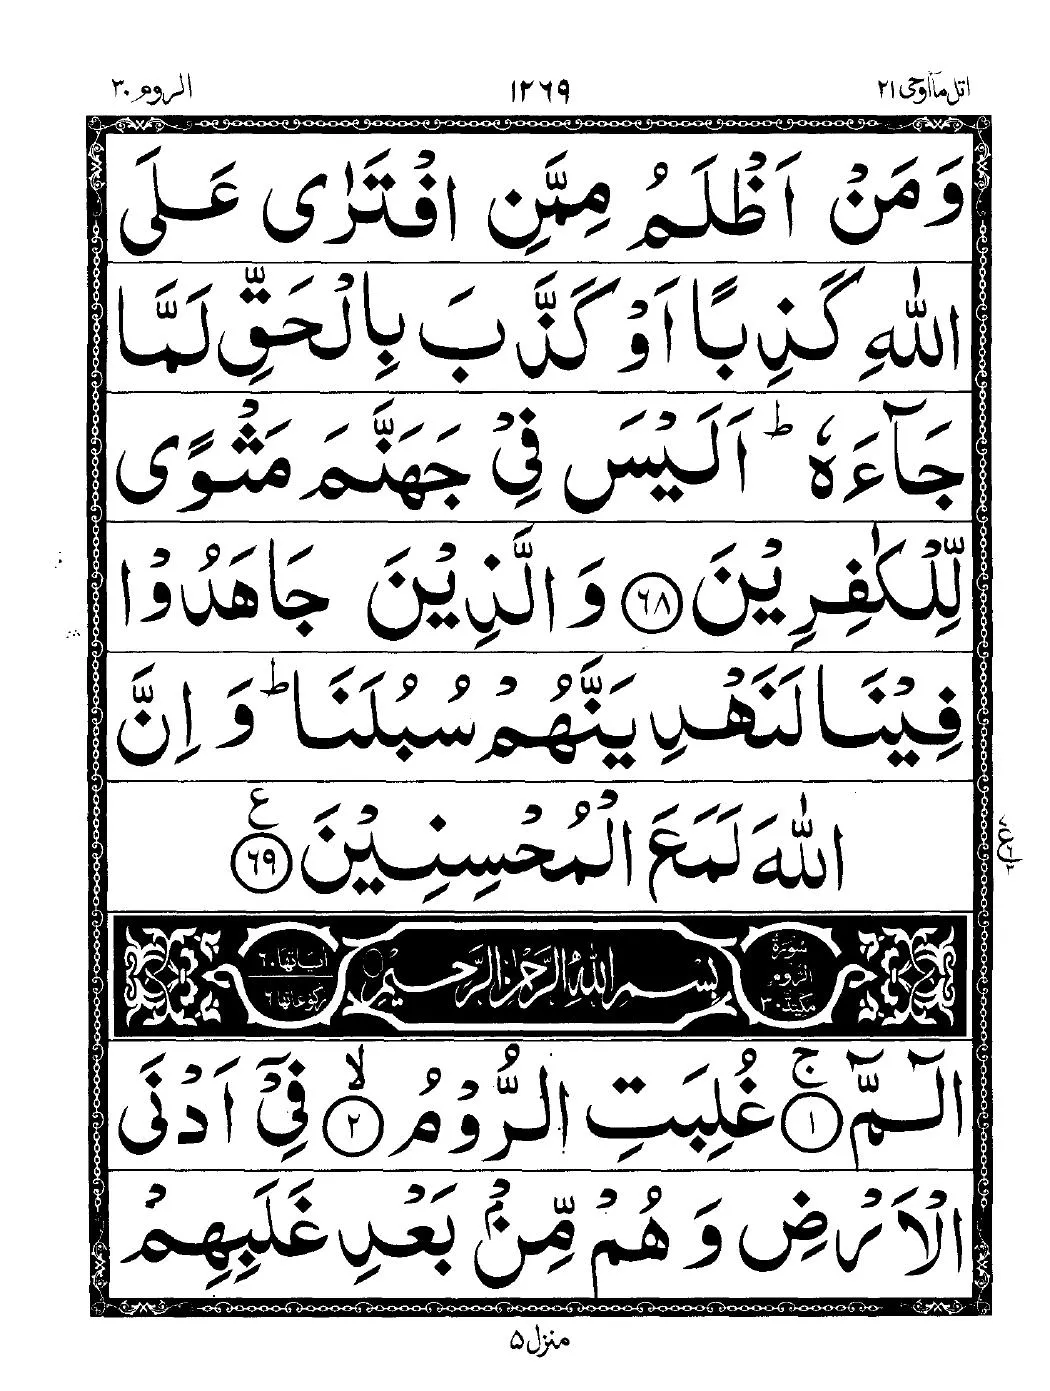 اتل مآاوحی ۲۱
۱۲۶۹
الروم ۳۰
وَ مَنْ اَظْلَمُ مِمَّنِ افْتَرٰى عَلَى
اللّٰهِ كَذِبًا اَوْ كَذَّبَ بِالْحَقِّ لَمَّا
جَآءَهٗ ؕ اَلَيْسَ فِيْ جَهَنَّمَ مَثْوًى
لِّلْكٰفِرِيْنَ ﴿۶۸﴾ وَ الَّذِيْنَ جَاهَدُوْا
فِيْنَا لَنَهْدِيَنَّهُمْ سُبُلَنَا ؕ وَ اِنَّ
اللّٰهَ لَمَعَ الْمُحْسِنِيْنَ ﴿۶۹﴾ ع
سُوْرَةُ
الرُّوْمِ
مَكِّيَّةٌ ۳۰
بِسْمِ اللّٰهِ الرَّحْمٰنِ الرَّحِيْمِ
اٰياتها ۶۰
ركوعاتها ۶
الٓمّٓ ۚ﴿۱﴾ غُلِبَتِ الرُّوْمُ ۙ﴿۲﴾ فِيْٓ اَدْنَى
الْاَرْضِ وَ هُمْ مِّنْۢ بَعْدِ غَلَبِهِمْ
منزل ۵